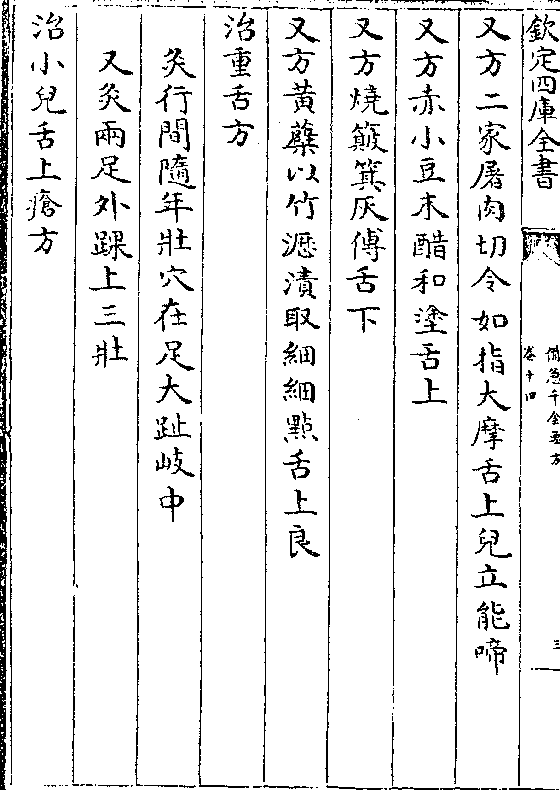 欽定四庫全書
備急千金要方
卷十四
三
又方二家屠肉切令如指大摩舌上兒立能啼
又方赤小豆末醋和塗舌上
又方燒簸箕灰傅舌下
又方黃蘗以竹瀝漬取細細點舌上良
治重舌方
灸行間隨年壯穴在足大趾岐中
又灸兩足外踝上三壯
治小兒舌上瘡方